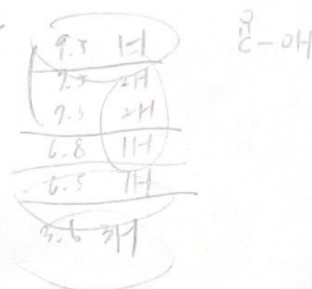 9.5 1H
7.5 2H
7.3 2H
6.8 1H
6.5 1H
3.6 3H
O
C-OH